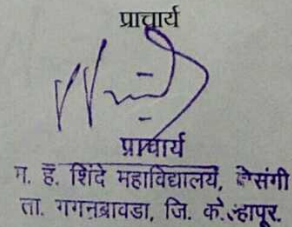 प्राचार्य
प्राचार्य
म. ह. शिंदे महाविद्यालय, तिसंगी
ता. गगनबावडा, जि. कोल्हापूर.